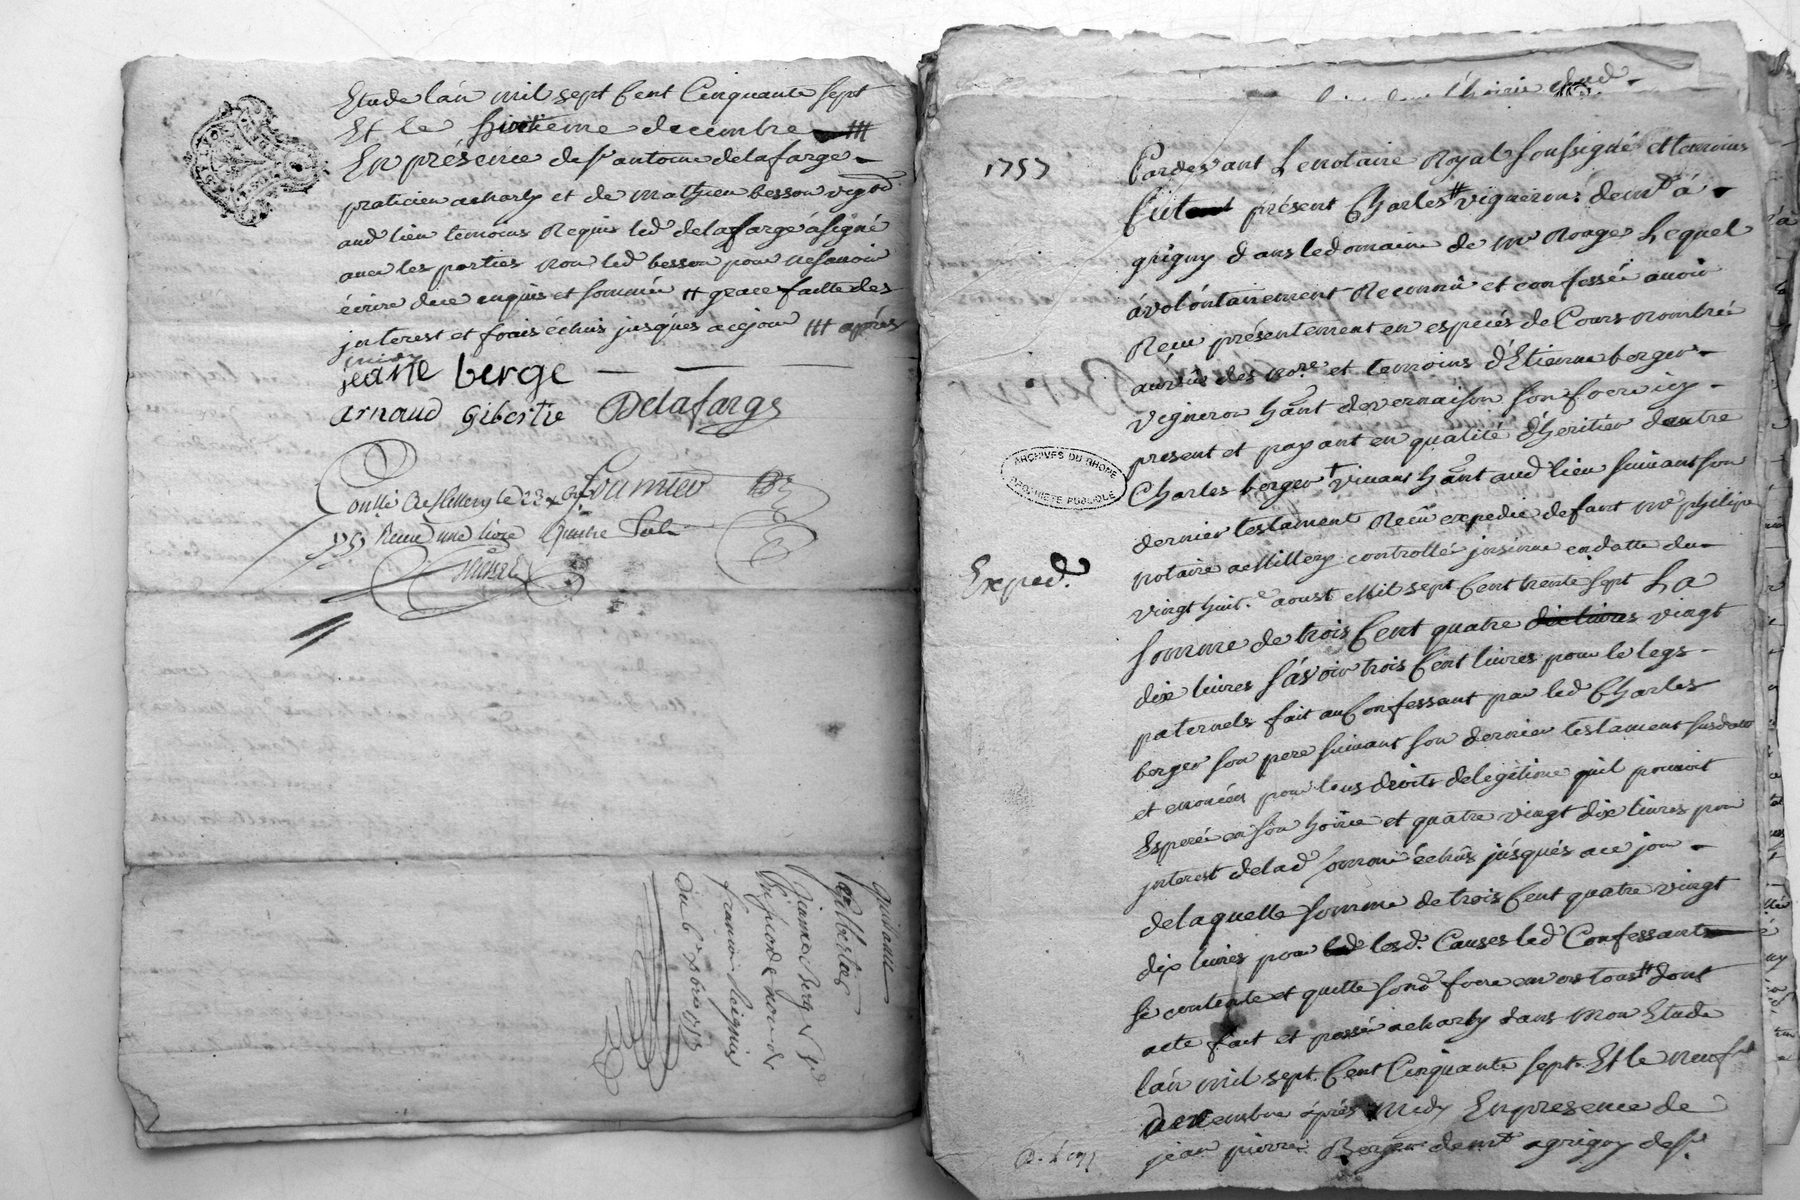 Etude l'an mil sept Cent Cinquante sept
Et le huitieme decembre ///
En présence de Sr antoine delafarge
praticien acharly et de mathieu besson vigr
aud lieu temoins Requis led delafarge á signé
avec les parties non led besson pour ne scavoir
écrire de ce enquis et sommé # grace faitte des
jnterest et frais échus jusques acejour /// aprés
midy
jeane berge
arnaud giberte Delafarge
Conllé a Millery le 22 xbre Fournier
1757 Reçu une livre quatre sols
quittance
par
jeanne Berg
francois
Du 8 xbre 1757
1757
Pardevant Lenotaire Royal soussigné et temoins
fut présent Charles # vigneron demt á
grigny dans ledomaine de Mr Ronge Lequel
á volóntairement Reconnû et confessé avoir
Reçu présentement en especes de Cours nombrée
aúvûe des nore et temoins d'Etienne berger
vigneron hant de vernaison son frere icy
present et payant en qualité d'heritier dautre
Charles berger + vivant hant aud lieu suivant son
dernier testament Reçû expedié defant Me philipe
notaire a Millery controllé jnsinué endatte du
vingt huit.e aoust Mil sept Cent trente sept La
somme de trois Cent quatre dix livres vingt
dix livres sávoir trois Cent livres pour le legs
paternels fait au Confessant par led Charles
berger son pere suivant son dernier testament susdatté
et enoncé pour tous droits delegitime quil pouvoit
Esperer en son hoirie et quatre vingt dix livres pour
jnterest delad somme échûs jusqués ace jour
de laquelle somme de trois Cent quatre vingt
dix livres pour lesd. Causes led Confessant
se contente et quitte sond frere envers tous # dont
acte fait et passé acharly dans mon Etude
l'an mil sept Cent Cinquante sept. Et le neuf
decembre áprés Midy En presence de
jean pierre Berger demt agrigny de Sr
Exped.
ARCHIVES DU RHONE
PROPRIETE PUBLIQUE